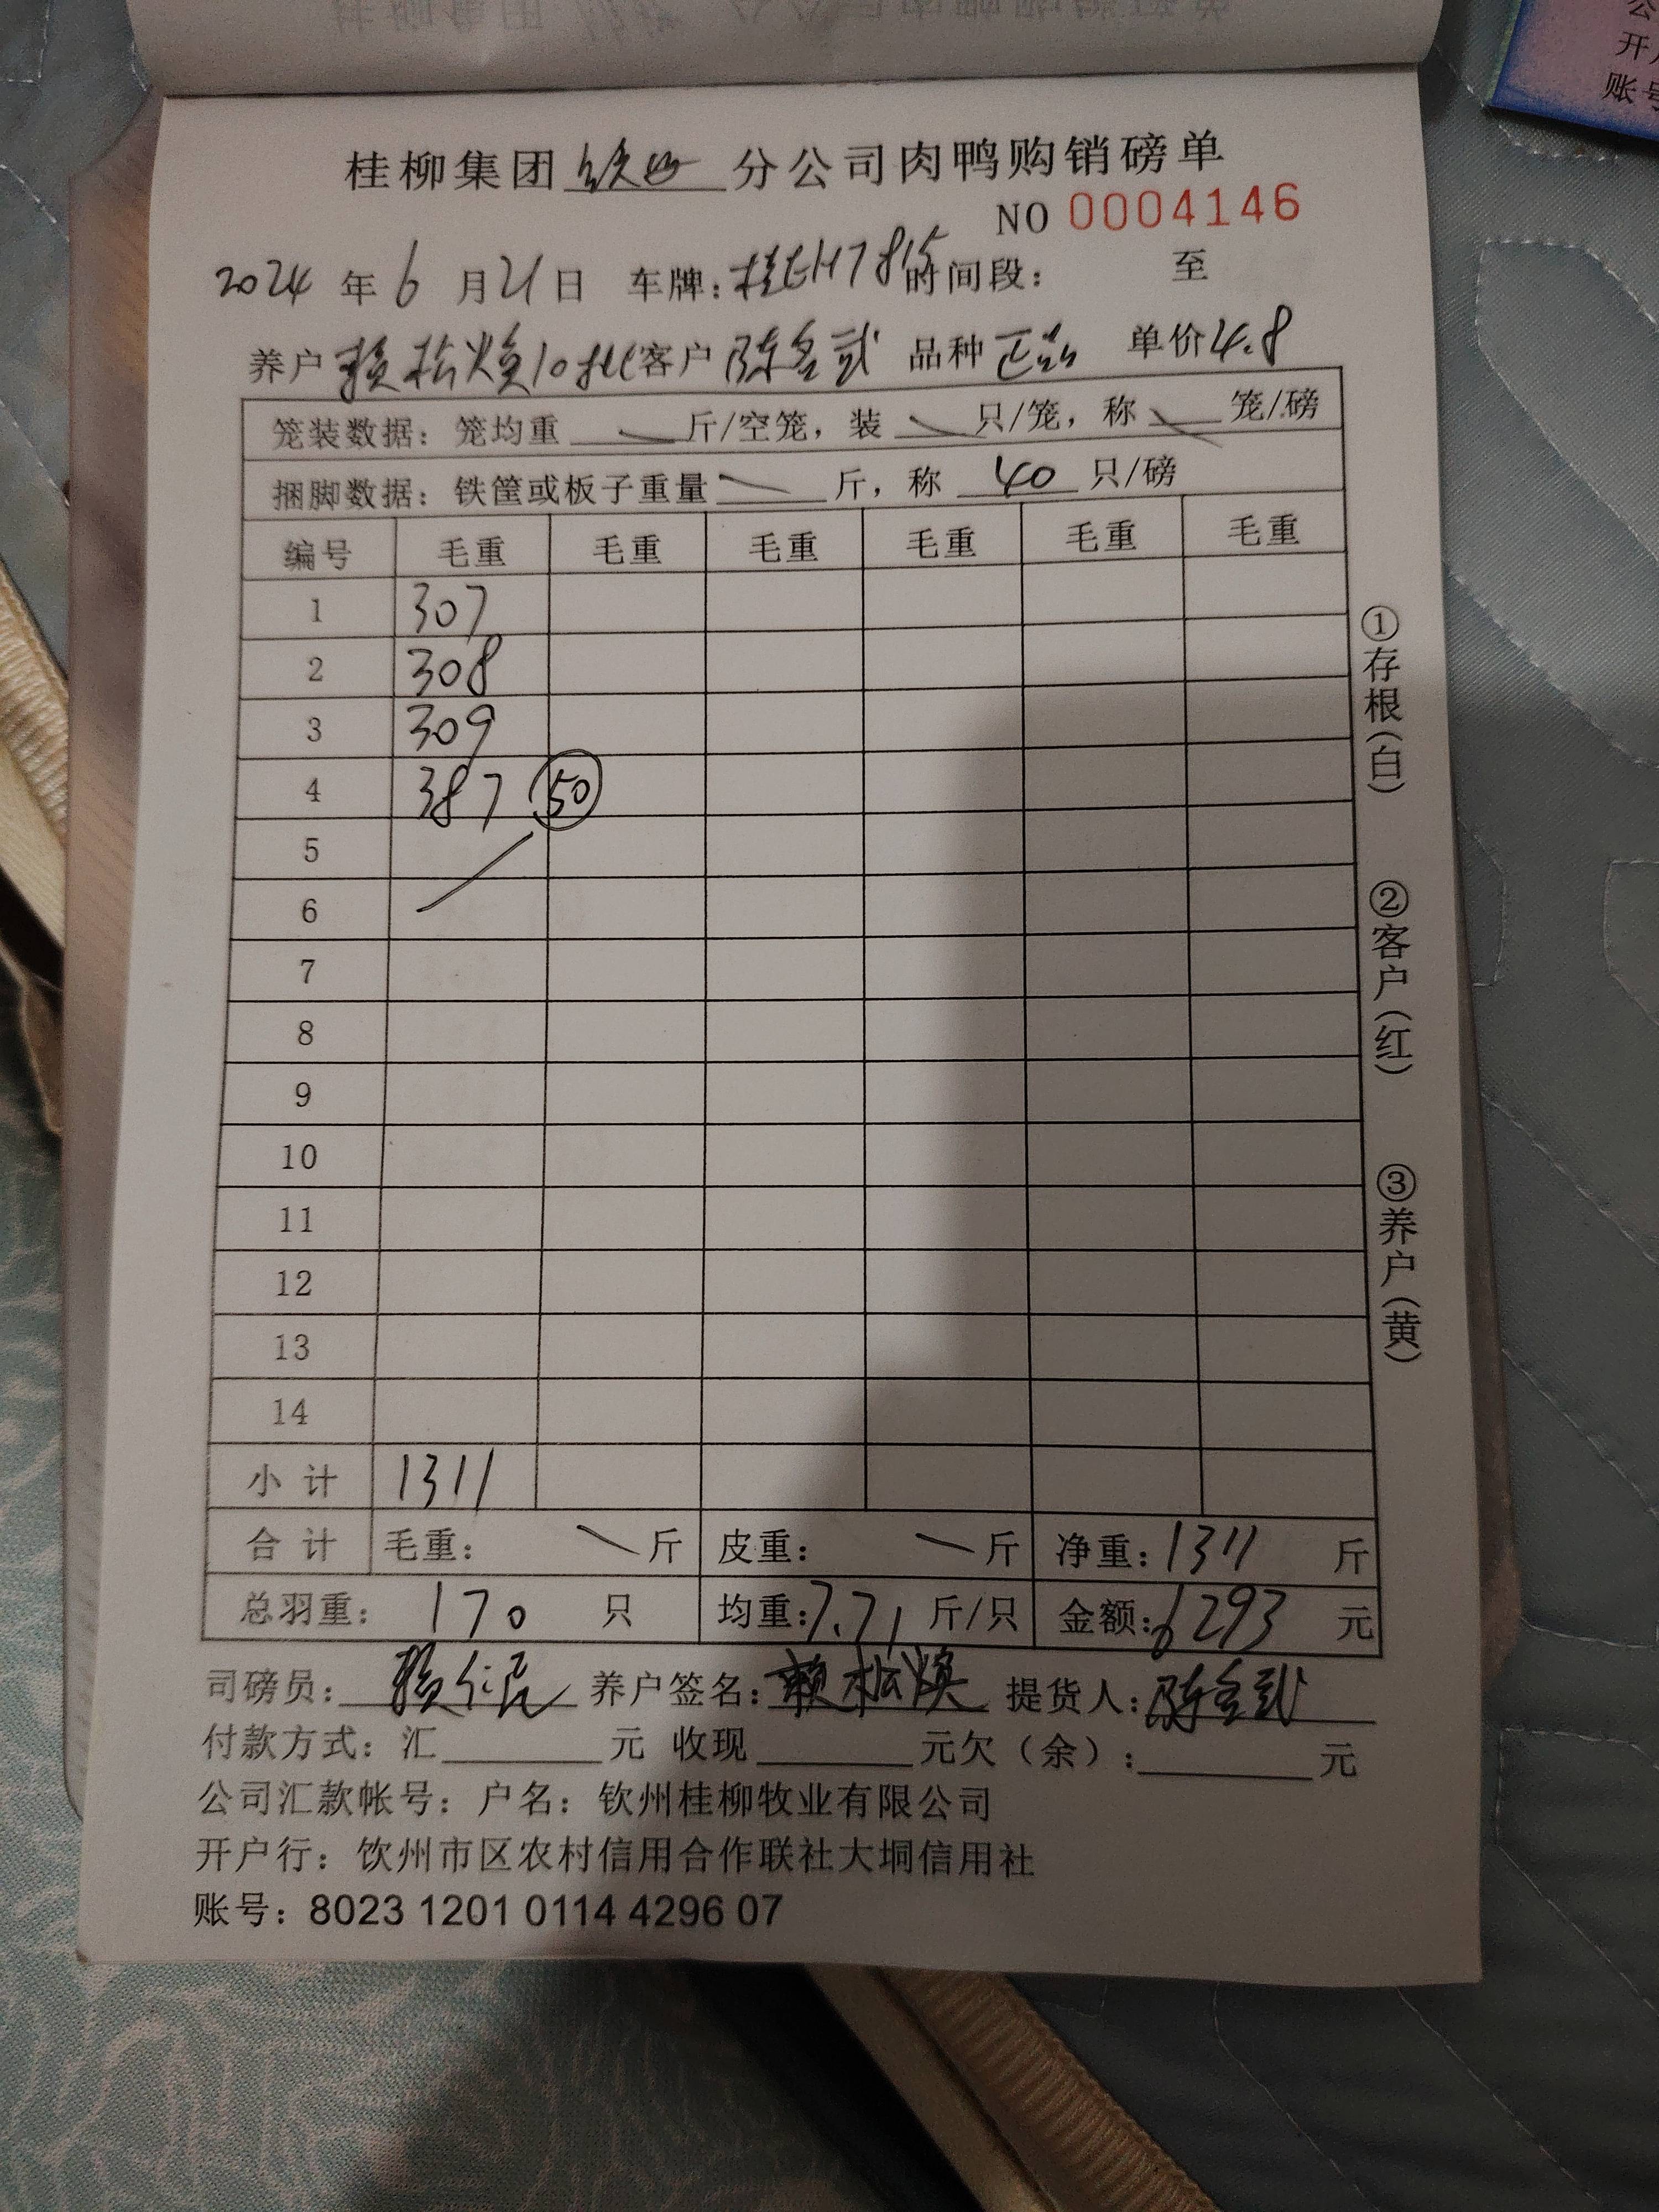 桂柳集团铁山分公司肉鸭购销磅单
NO 0004146
2024年6月21日 车牌:桂EH78 时间段: 至
养户 赖松焕10批 客户 陈名武 品种 正品 单价4.8
笼装数据:笼均重 斤/空笼,装 只/笼,称 笼/磅
捆脚数据:铁筐或板子重量 斤,称 40 只/磅
编号 毛重 毛重 毛重 毛重 毛重 毛重
1 307
2 308
3 309
4 387 50
5
6
7
8
9
10
11
12
13
14
小计 1311
合计 毛重: 斤 皮重: 斤 净重:1311 斤
总羽重: 170 只 均重:7.71 斤/只 金额:6293 元
司磅员: 养户签名:赖松焕 提货人:陈名武
付款方式:汇 元 收现 元欠(余): 元
公司汇款帐号:户名:钦州桂柳牧业有限公司
开户行:钦州市区农村信用合作联社大垌信用社
账号:8023 1201 0114 4296 07
①存根(白)
②客户(红)
③养户(黄)
开户
账号